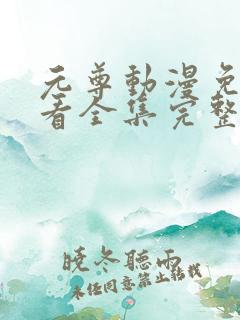 元尊動漫免
看全集完整
曉冬聽雨
未经同意禁止转载